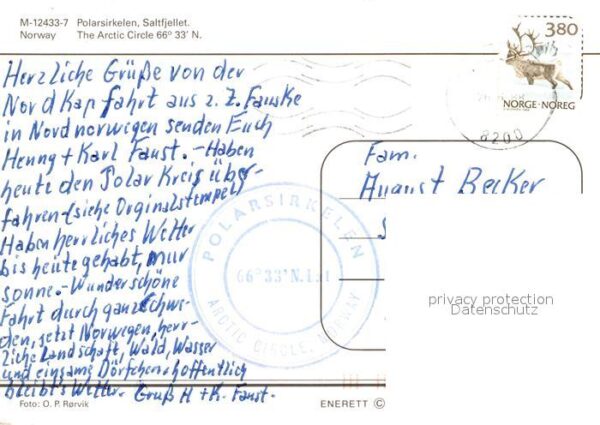 M-12433-7 Polarsirkelen, Saltfjellet.
Norway The Arctic Circle 66° 33' N.
Herzliche Grüße von der
Nord Kap fahrt aus z. Z. Fauske
in Nordnorwegen senden Euch
Henny + Karl Faust. - Haben
heute den Polar Kreis über-
fahren - (siehe Orginalstempel)
Haben herrliches Wetter
bis heute gehabt, nur
sonne. - Wunderschöne
Fahrt durch ganz Schwe-
den, jetzt Norwegen, herr-
liche Landschaft, Wald, Wasser
und einsame Dörfchen, hoffentlich
bleibt's Wetter. Gruß H + K. Faust.
Foto: O. P. Rørvik
380
NORGE · NOREG
8200
Fam.
August Becker
POLARSIRKELEN
66°33'N.
ARCTIC CIRCLE, NORWAY
privacy protection
Datenschutz
ENERETT ©